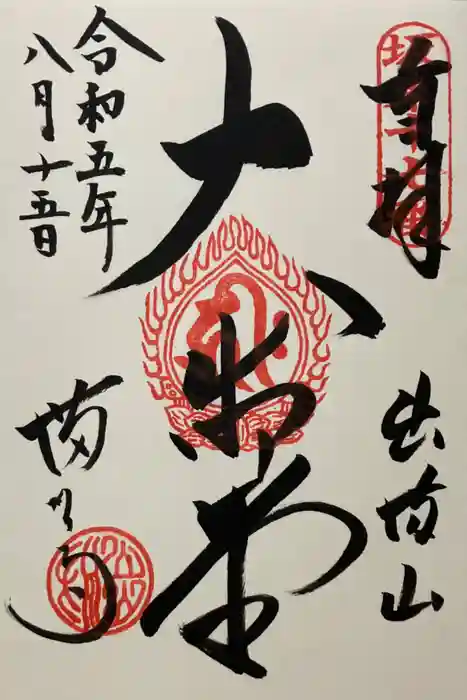 奉拝
出流山
大悲堂
令和五年
八月十五日
満願寺